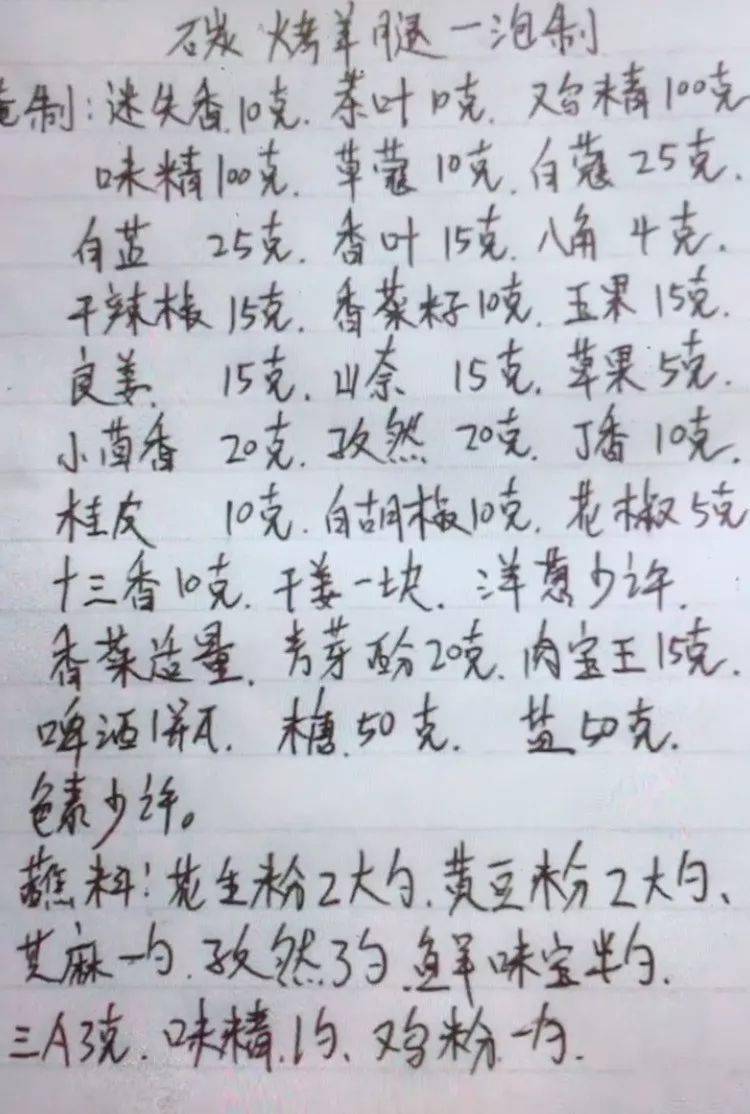 碳烤羊腿一泡制
腌制:迷失香10克.茶叶10克.鸡精100克
味精100克.草蔻10克.白蔻25克.
白蓝 25克.香叶15克.八角4克.
干辣椒15克.香菜籽10克.玉果15克.
良姜. 15克.山奈 15克.草果5克.
小茴香 20克.孜然 20克.丁香10克.
桂皮 10克.白胡椒10克.花椒5克
十三香10克.干姜一块.洋葱少许.
香菜适量.麦芽酚20克.肉宝王15克.
啤酒1瓶.糖.50克.盐50克.
色素少许。
蘸料:花生粉2大勺.黄豆粉2大勺、
芝麻一勺.孜然3勺.鲜味宝半勺.
三A3克.味精.1勺、鸡粉一勺.